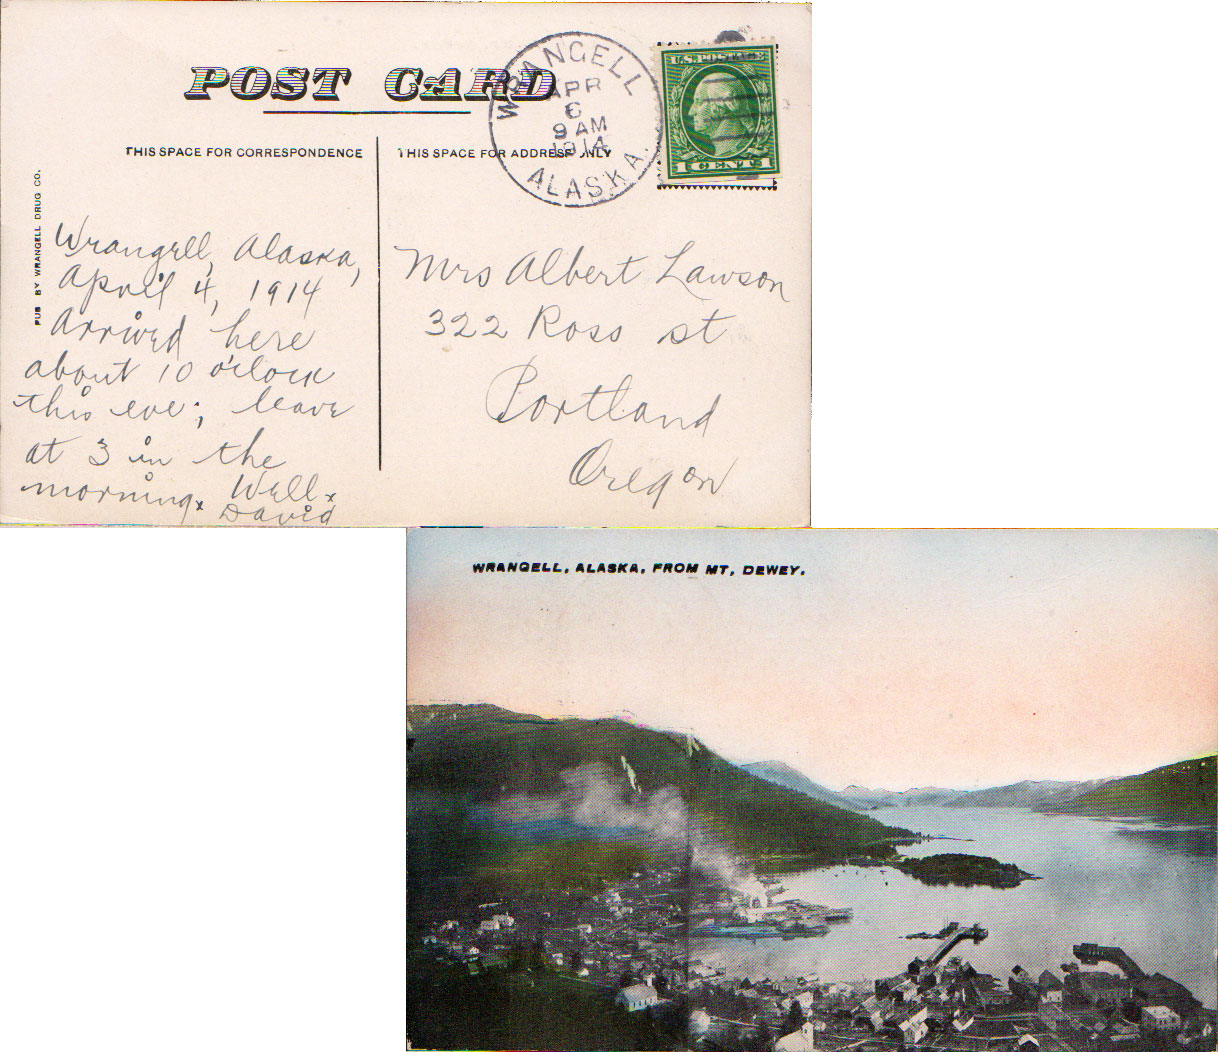 POST CARD
WRANGELL
APR
6
9 AM
1914
ALASKA.
U.S. POSTAGE
1 CENT 1
THIS SPACE FOR CORRESPONDENCE
THIS SPACE FOR ADDRESS ONLY
PUB BY WRANGELL DRUG CO.
Wrangell, Alaska,
April 4, 1914
Arrived here
about 10 o'clock
this eve; leave
at 3 in the
morning. Well.
David
Mrs Albert Lawson
322 Ross st
Portland
Oregon
WRANGELL, ALASKA, FROM MT, DEWEY.